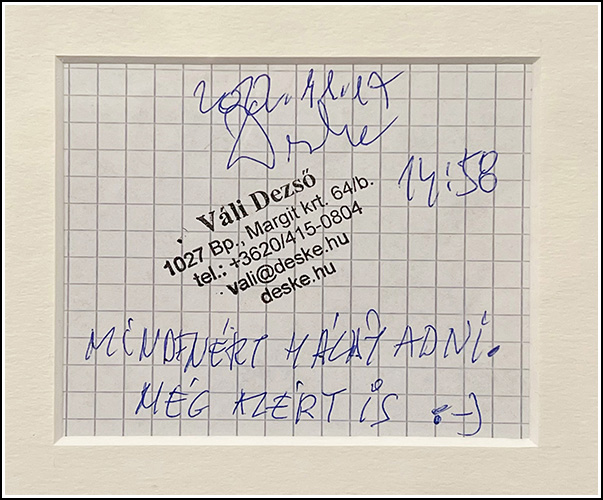 Deske
14:58
Váli Dezső
1027 Bp., Margit krt. 64/b.
tel.: +3620/415-0804
vali@deske.hu
deske.hu
MINDENÉRT HÁLÁT ADNI.
MÉG EZÉRT IS :-)